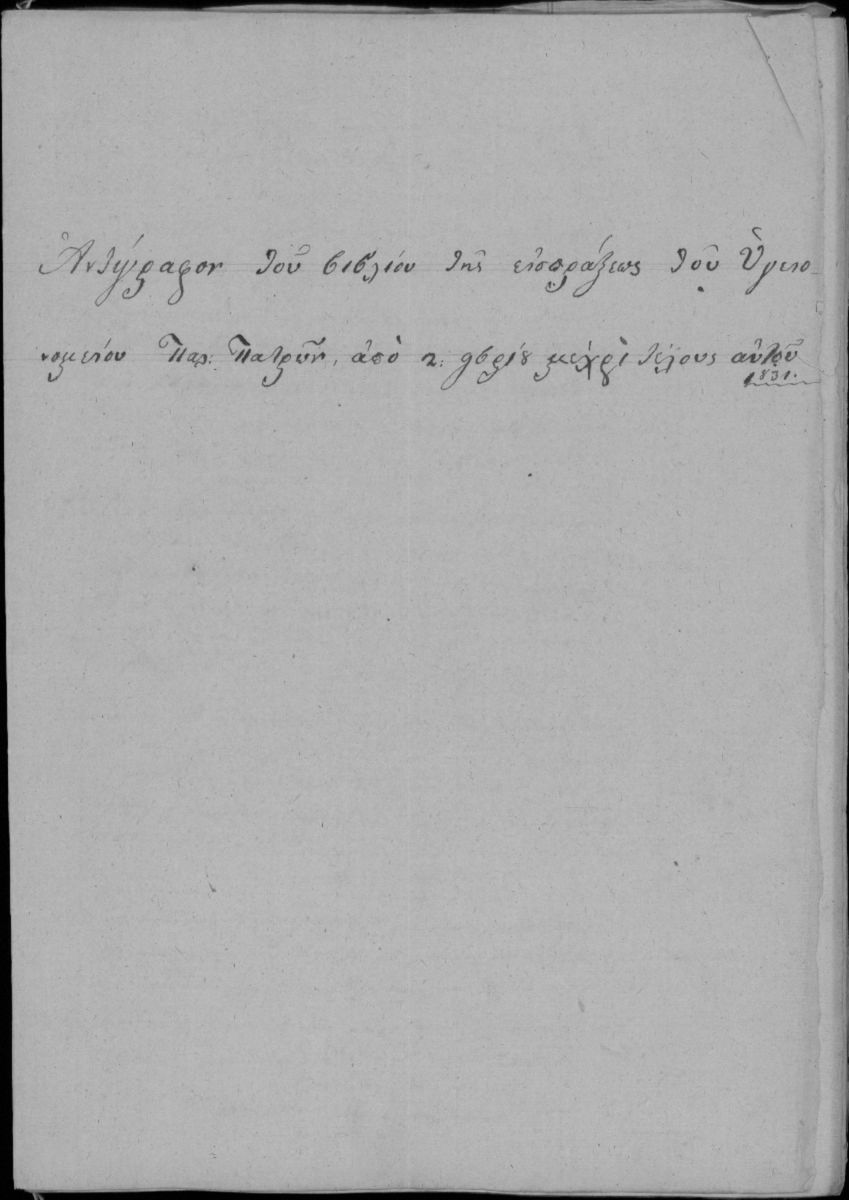 Ἀντίγραφον τοῦ βιβλίου τῆς εἰσπράξεως τοῦ Ὑγειο-
νομείου Παρ: Πατρῶν, ἀπὸ 2: 9βρίου μέχρι τέλους αὐτοῦ
1831.